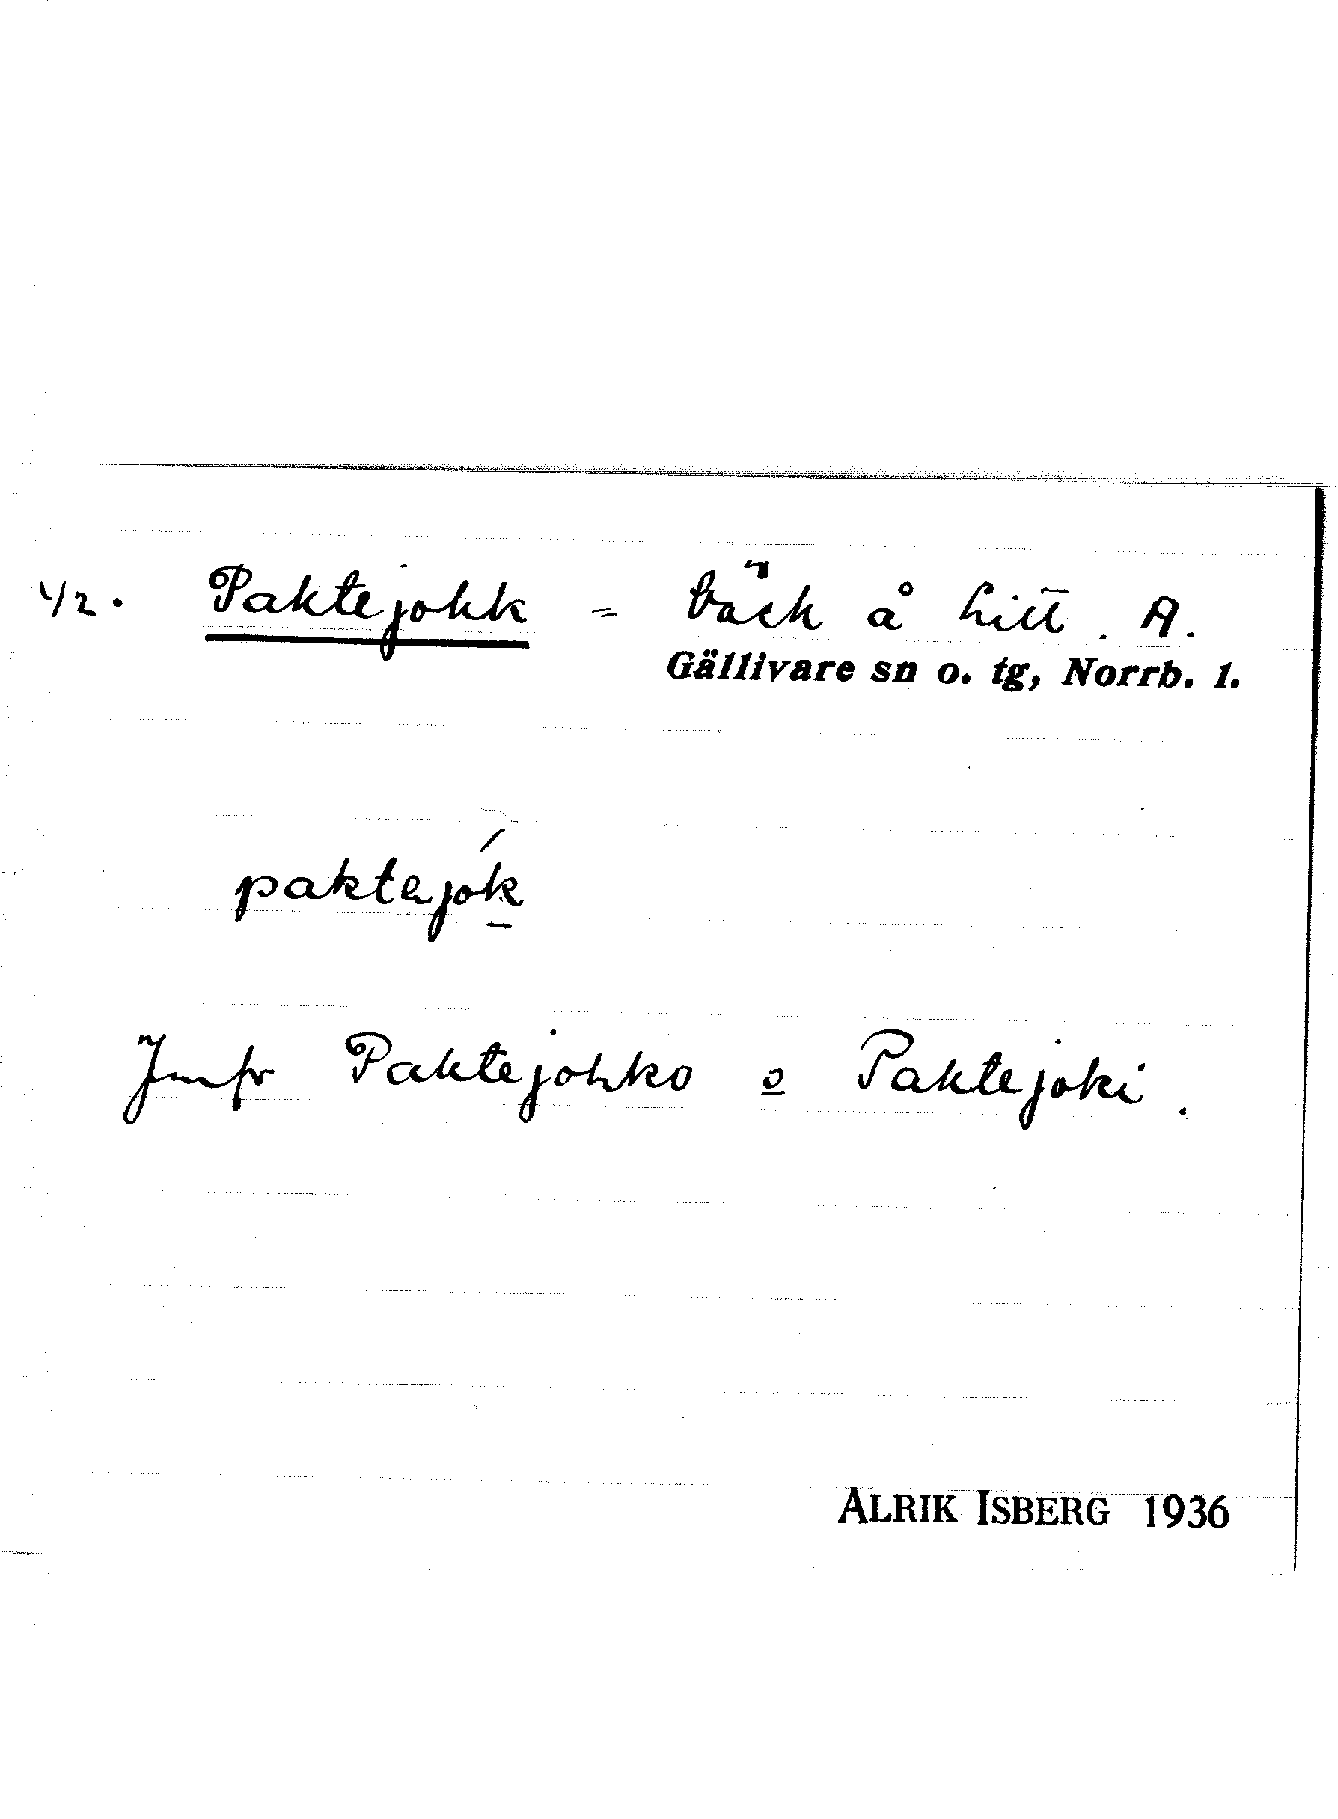 42. Paktejohk = bäck å litt. A.
Gällivare sn o. tg, Norrb. l.
paktejók
Jmfr Paktejohko o Paktejoki.
ALRIK ISBERG 1936